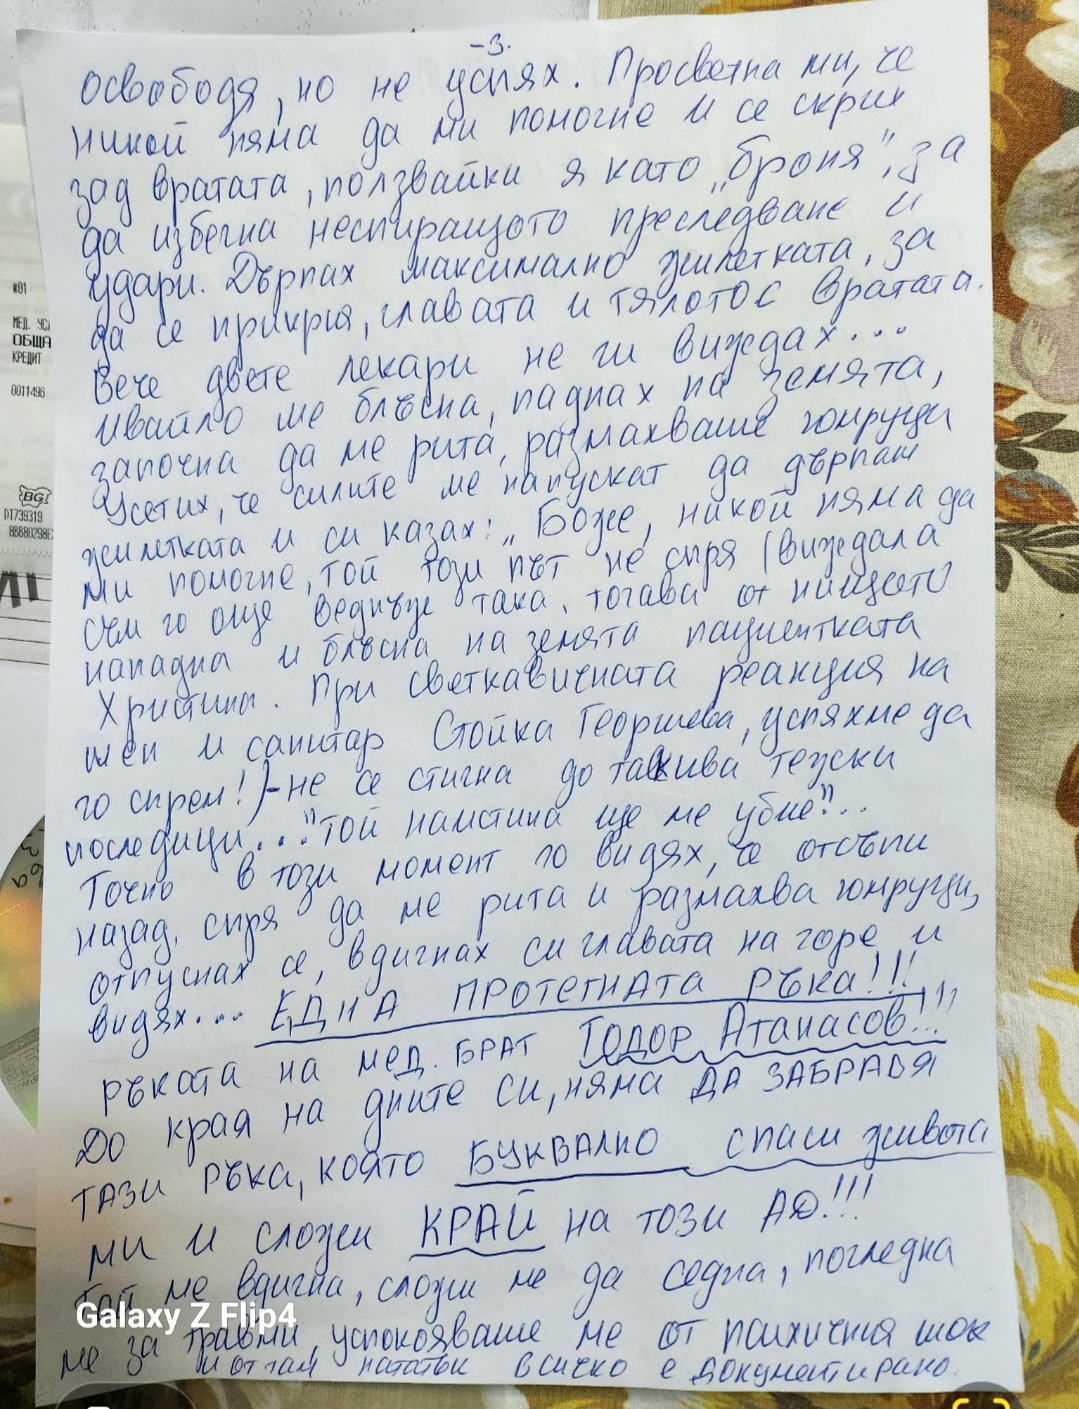 -3.
освободя, но не успях. Просветна ми, че
никой няма да ми помогне и се скрих
зад вратата, ползвайки я като „броня", за
да избегна неспиращото преследване и
удари. Дърпах максимално жилетката, за
да се прикрия, главата и тялото с вратата.
Вече двете лекари не ги виждах...
Ивайло ме блъсна, паднах на земята,
започна да ме рита, размахваше юмруци
Усетих, че силите ме напускат да дърпам
жилетката и си казах: „Боже, никой няма да
ми помогне, той този път не спря (виждала
съм го още веднъж така, тогава от нищото
нападна и блъсна на земята пациентката
Христина. При светкавичната реакция на
мен и санитар Стойка Георгиева, успяхме да
го спрем!) - не се стигна до такива тежки
последици..."Той наистина ще ме убие"..
Точно в този момент го видях, че отстъпи
назад, спря да ме рита и размахва юмруци,
отпуснах се, вдигнах си главата на горе и
видях... ЕДНА ПРОТЕГНАТА РЪКА!!!
ръката на мед. БРАТ ТОДОР Атанасов!!!
До края на дните си, няма ДА ЗАБРАВЯ
ТАЗИ РЪКА, КОЯТО БУКВАЛНО СПАСИ живота
МИ И СЛОЖИ КРАЙ НА ТОЗИ АД!!!
Той ме вдигна, сложи ме да седна, погледна
ме за травми, успокояваше ме от психичния шок
и от там нататък всичко е документирано.
#01
МЕД. УС
ОБЩА
КРЕДИТ
0011496
BG
DT739319
Galaxy Z Flip4